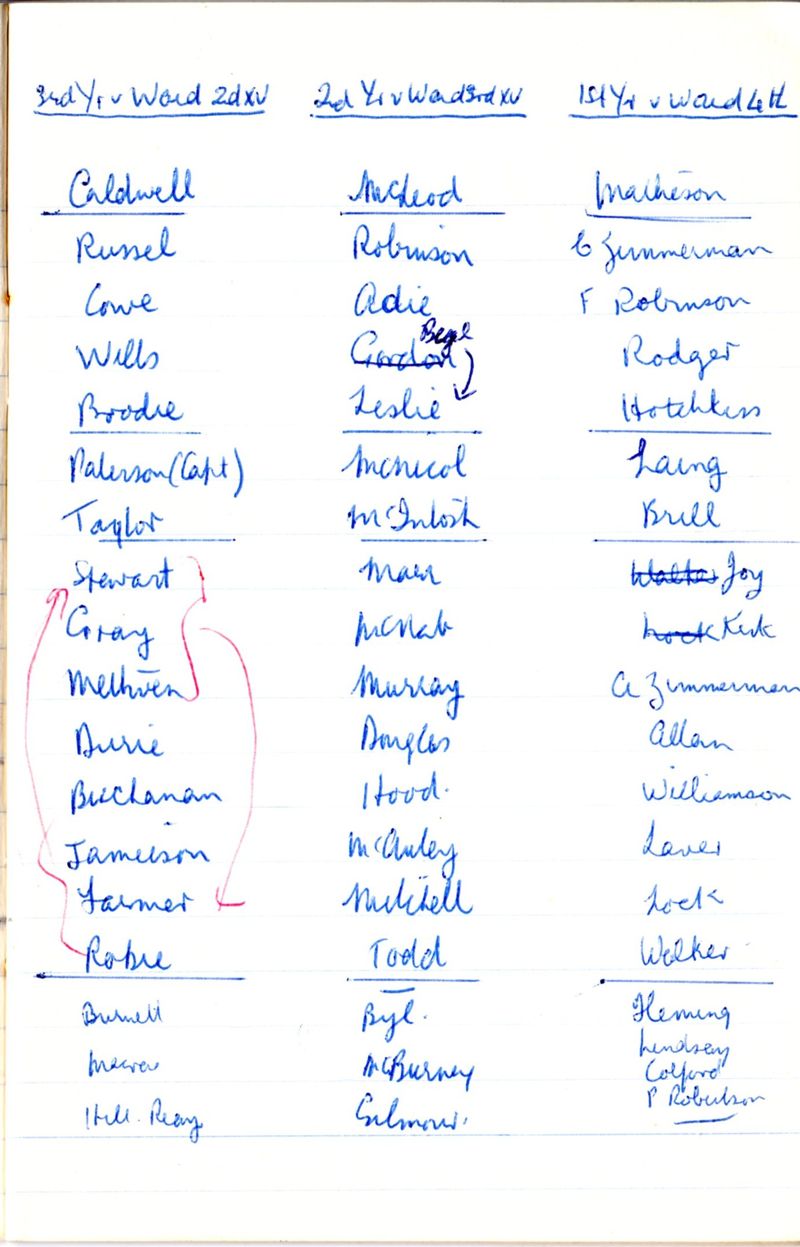 3rd Yr v Ward 2d XV
Caldwell
Russel
Cowe
Wills
Brodie
Paterson (Capt)
Taylor
Stewart
Gray
Methven
Durie
Buchanan
Jameison
Farmer
Robie
Burnett
Macrae
Hill. Reay
2nd Yr v Ward 3rd XV
McLeod
Robinson
Adie
Gordon
Leslie
McNicol
McIntosh
Mair
McNab
Murray
Douglas
Hood.
McAuley
Mitchell
Todd
McBurney
Gilmour.
1st Yr v Ward 4th
Matheson
G Zimmerman
F Robinson
Rodger
Hotchkiss
Laing
Brill
Walker Joy
Lock Kirk
A Zimmerman
Allan
Williamson
Laver
Lock
Walker
Fleming
Lindsay
Colford
P Robertson